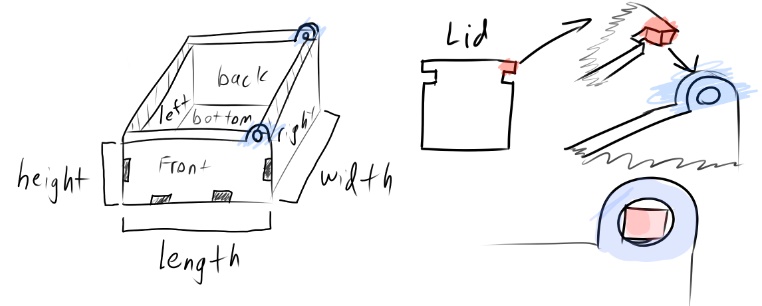 Lid
back
left
bottom
right
Front
height
width
length